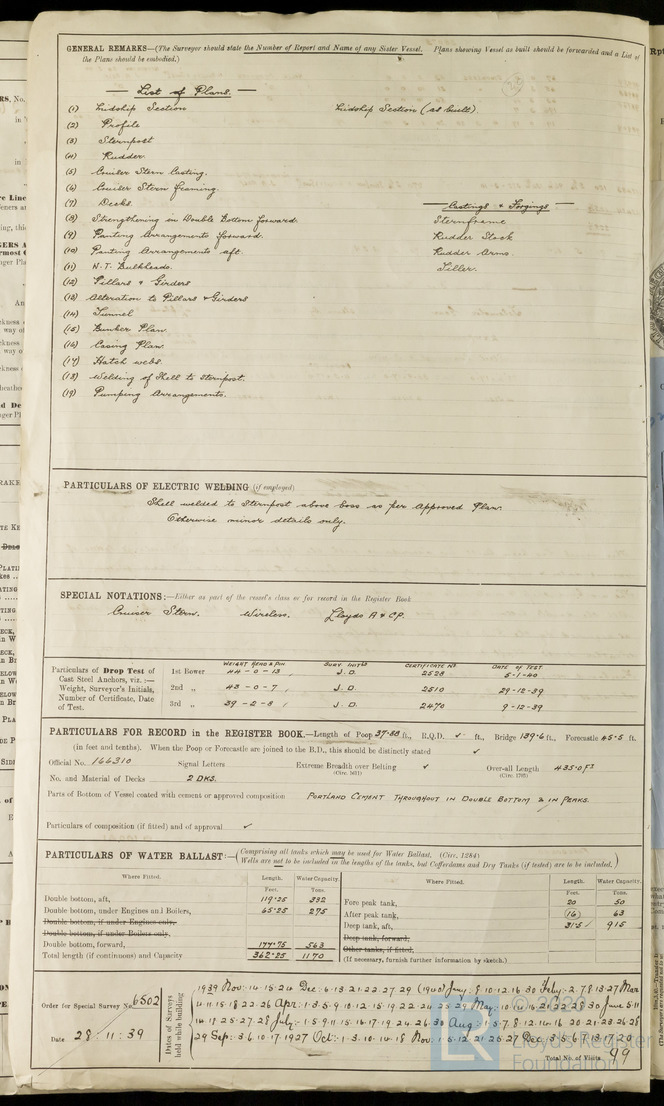 GENERAL REMARKS—(The Surveyor should state the Number of Report and Name of any Sister Vessel. Plans showing Vessel as built should be forwarded and a List of
the Plans should be embodied.)
— List of Plans. —
(1) Midship Section Midship Section (as built).
(2) Profile
(3) Sternpost
(4) Rudder.
(5) Cruiser Stern Casting.
(6) Cruiser Stern Framing.
(7) Decks. — Castings & Forgings —
(8) Strengthening in Double Bottom forward. Sternframe
(9) Panting Arrangements forward. Rudder Stock
(10) Panting Arrangements aft. Rudder Arms.
(11) W.T. Bulkheads. Tiller.
(12) Pillars & Girders
(13) Alteration to Pillars & Girders
(14) Tunnel
(15) Bunker Plan.
(16) Casing Plan.
(17) Hatch webs.
(18) Welding of Shell to Sternpost.
(19) Pumping Arrangements.
PARTICULARS OF ELECTRIC WELDING (if employed)
Shell welded to Sternpost above boss as per Approved Plan.
Otherwise minor details only.
SPECIAL NOTATIONS:—Either as part of the vessel's class or for record in the Register Book
Cruiser Stern. Wireless. Lloyds A & CP.
WEIGHT HEAD & PIN SURV. INITLS CERTIFICATE NO. DATE OF TEST.
Particulars of Drop Test of 1st Bower 44-0-13 J.D. 2528 5-1-40
Cast Steel Anchors, viz.:—
Weight, Surveyor's Initials, 2nd „ 43-0-7 J.D. 2510 29-12-39
Number of Certificate, Date
of Test. 3rd „ 39-2-8 J.D. 2470 9-12-39
PARTICULARS FOR RECORD in the REGISTER BOOK.—Length of Poop 37.88 ft., R.Q.D. ✓ ft., Bridge 139.6 ft., Forecastle 45.5 ft.
(in feet and tenths). When the Poop or Forecastle are joined to the B.D., this should be distinctly stated ✓
Official No. 166310 Signal Letters Extreme Breadth over Belting ✓ Over-all Length 435.0 FT
(Circ. 1611) (Circ. 1703)
No. and Material of Decks 2 DKS.
Parts of Bottom of Vessel coated with cement or approved composition PORTLAND CEMENT THROUGHOUT IN DOUBLE BOTTOM & IN PEAKS.
Particulars of composition (if fitted) and of approval ✓
PARTICULARS OF WATER BALLAST:—(Comprising all tanks which may be used for Water Ballast. (Circ. 1284)
Wells are not to be included in the lengths of the tanks, but Cofferdams and Dry Tanks (if tested) are to be included.)
Where Fitted. Length. Water Capacity. Where Fitted. Length. Water Capacity.
Feet. Tons. Feet. Tons.
Double bottom, aft, 119.25 332 Fore peak tank, 20 50
Double bottom, under Engines and Boilers, 65.25 275 After peak tank, (16) 63
Double bottom, if under Engines only, Deep tank, aft, 31.5 915
Double bottom, if under Boilers only, Deep tank, forward,
Double bottom, forward, 177.75 563 Other tanks, if fitted,
Total length (if continuous) and Capacity 362.25 1170 (If necessary, furnish further information by sketch.)
Order for Special Survey No. 6502
Date 28.11.39
Dates of Surveys held while building
1939 Nov: 14.15.24 Dec: 6.13.21.22.27.29 (1940) Jany: 8.10.12.16.30 Feby: 2.7.8.13.27 Mar
Total No. of Visits 99
© 2020
Lloyd's Register
Foundation